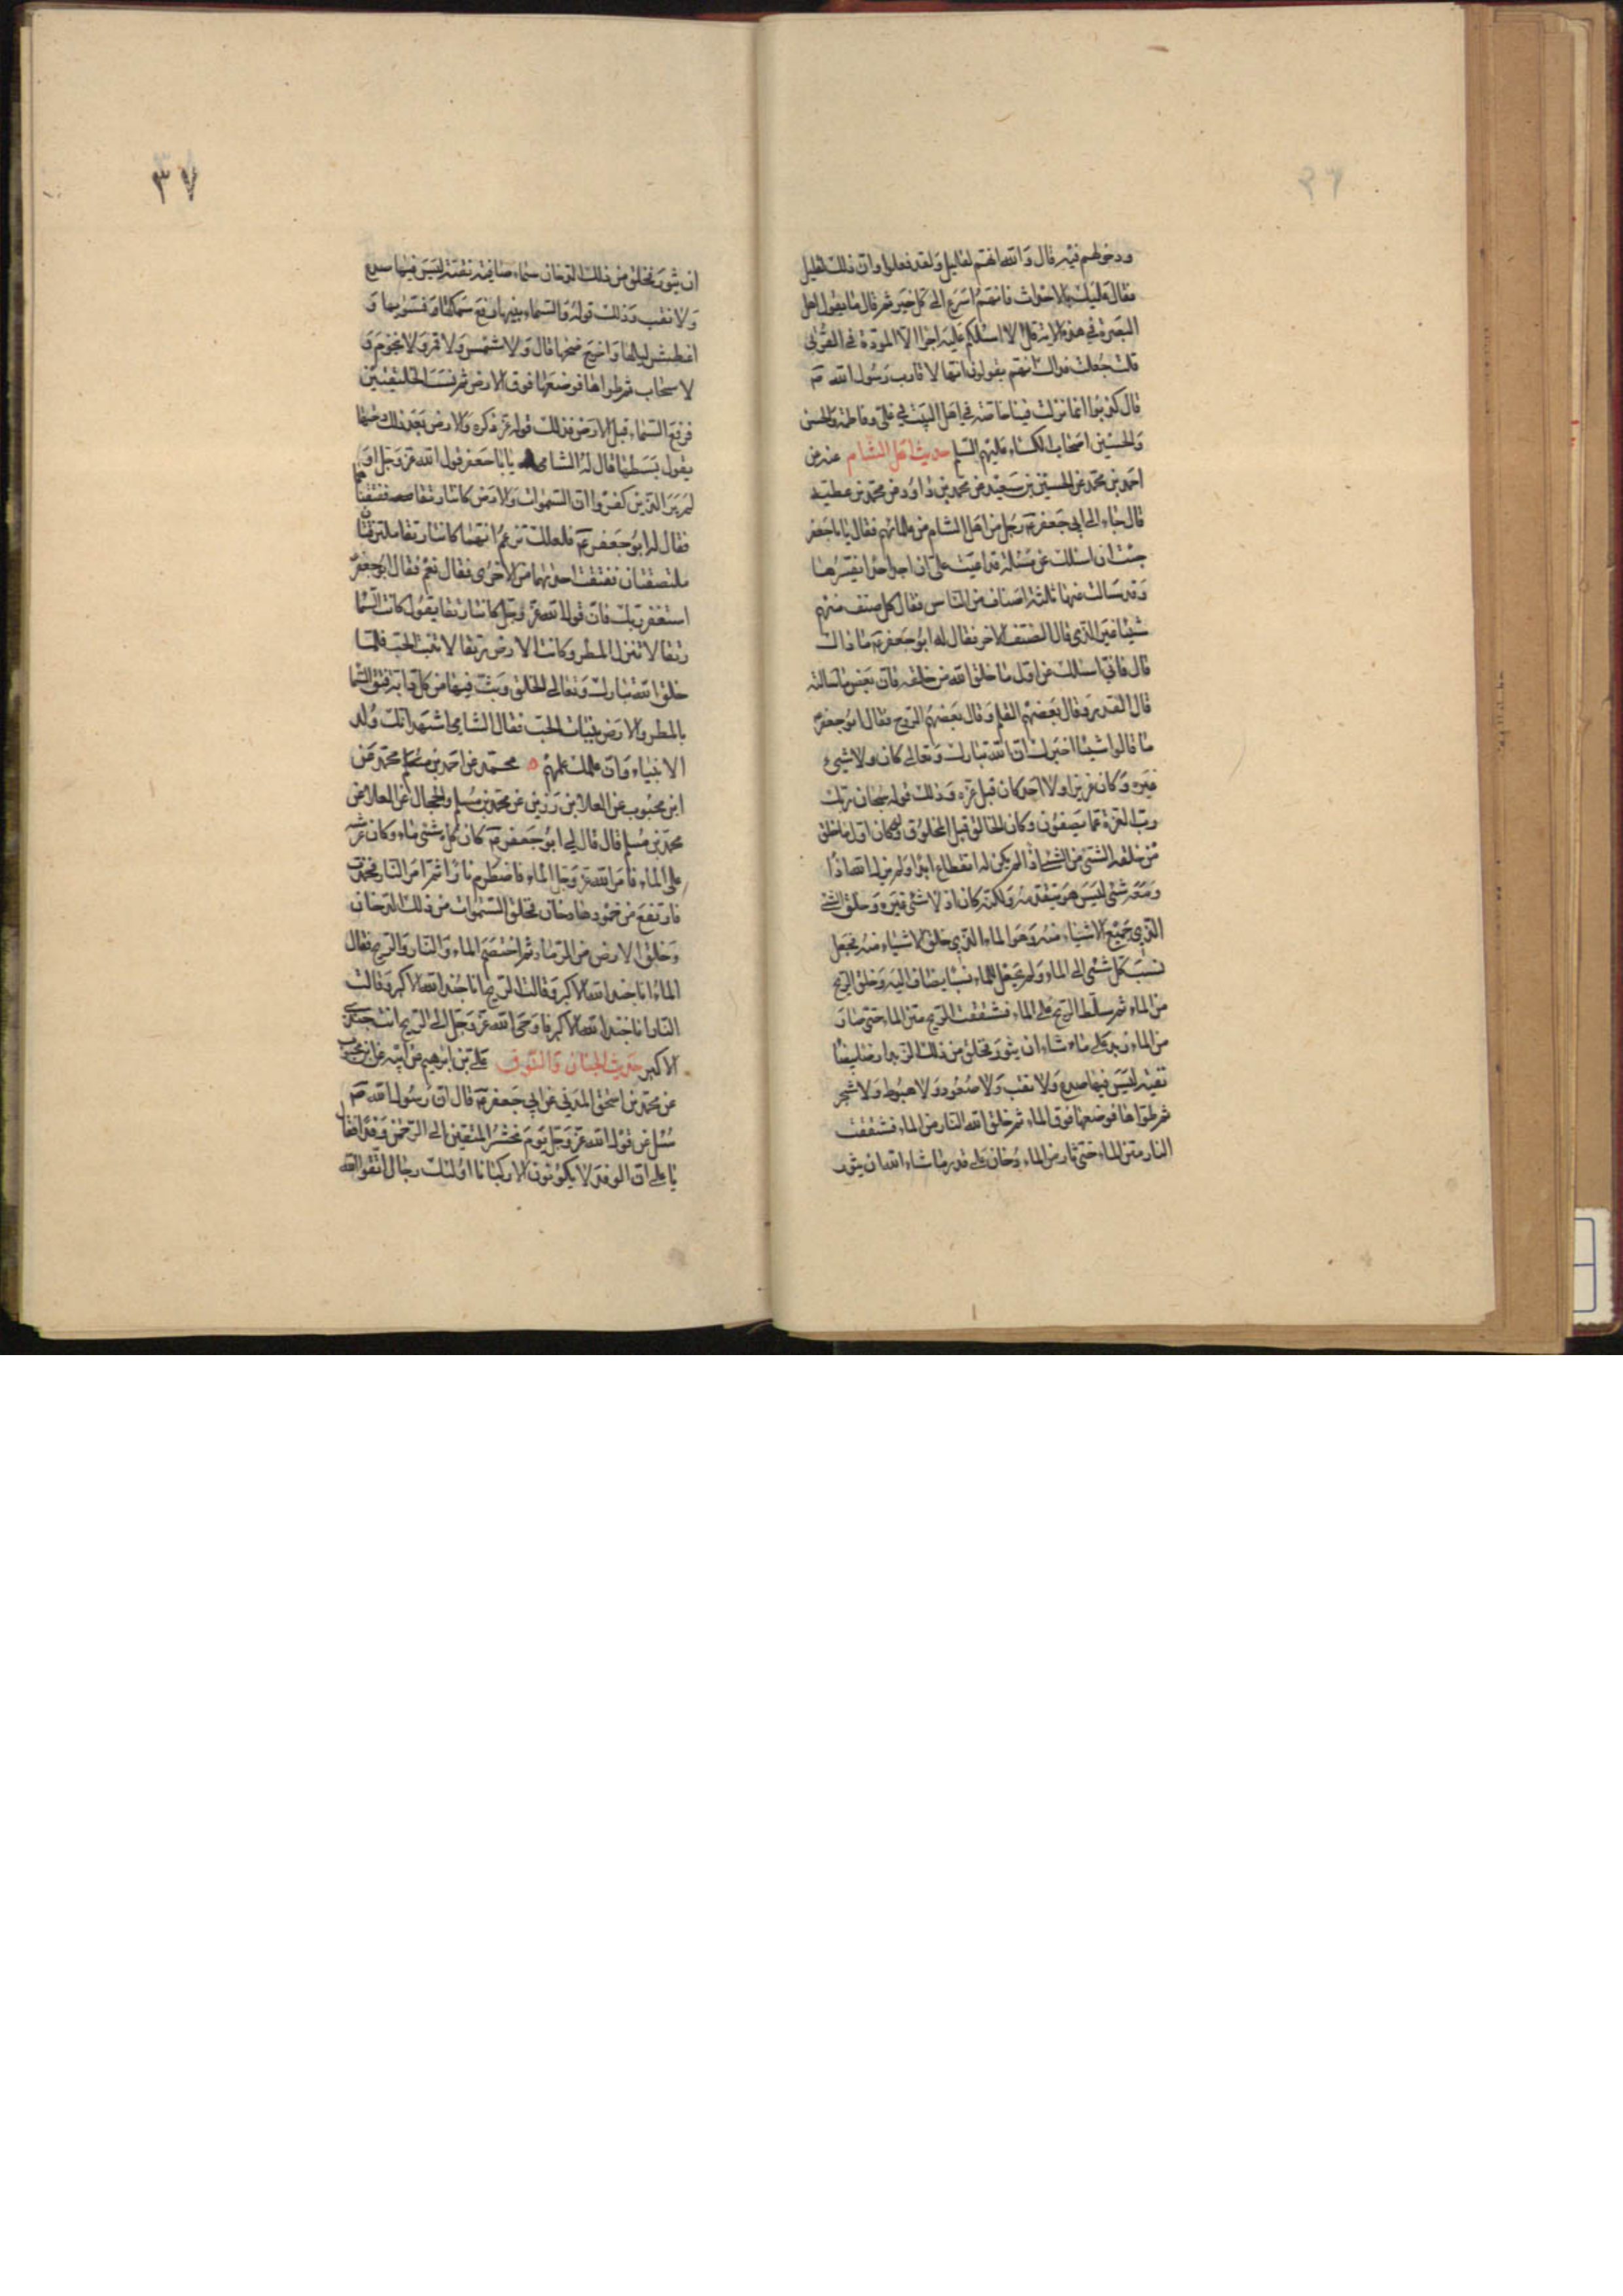 ودخولهم فيه قال والله انهم لقليل ولقد فعلوا وان ذلك لقليل
فقال عليك بالاحداث فانهم اسرع الى كل خير ثم قال ما يقول اهل
البصرة في هذه الاية قل لا اسئلكم عليه اجرا الا المودة في القربى
قلت جعلت فداك انهم يقولون انها لاقارب رسول الله ص
قال كذبوا انما نزلت فينا خاصة في اهل البيت في علي وفاطمة والحسن
والحسين اصحاب الكساء عليهم السلم حديث اهل الشام عنه عن
احمد بن محمد عن الحسين بن سعيد عن محمد بن داود عن محمد بن عطية
قال جاء الى ابي جعفر ع رجل من اهل الشام من علمائهم فقال يا با جعفر
جئت اسئلك عن مسئلة قد اعيت على ان اجد احدا يفسرها
وقد سالت عنها ثلثة اصناف من الناس فقال كل صنف منهم
شيئا غير الذي قال الصنف الاخر فقال له ابو جعفر ع ما ذاك
قال فاني اسئلك عن اول ما خلق الله من خلقه فان بعض من سالته
قال القدر وقال بعضهم القلم وقال بعضهم الروح فقال ابو جعفر ع
ما قالوا شيئا اخبرك ان الله تبارك وتعالى كان ولا شيء
غيره وكان عزيزا ولا احد كان قبل عزه وذلك قوله سبحان ربك
رب العزة عما يصفون وكان الخالق قبل المخلوق ولو كان اول ما خلق
من خلقه الشئ من الشئ اذا لم يكن له انقطاع ابدا ولم يزل الله اذا
ومعه شئ ليس هو يتقدمه ولكنه كان اذ لا شئ غيره وخلق الشئ
الذي جميع الاشياء منه وهو الماء الذي خلق الاشياء منه فجعل
نسب كل شئ الى الماء ولم يجعل للماء نسبا يضاف اليه وخلق الريح
من الماء ثم سلط الريح على الماء فشققت الريح متن الماء حتى ثار
من الماء زبد على ماء شاء ان يثور فخلق من ذلك الزبد ارضا بيضا
نقية ليس فيها صدع ولا نقب ولا صعود ولا هبوط ولا شجر
ثم طواها فوضعها فوق الماء ثم خلق الله النار من الماء فشققت
النار متن الماء حتى ثار من الماء دخان على قدر ما شاء الله ان يثور
٣٧
ان يثور فخلق من ذلك الدخان سماء صافية نقية ليس فيها صدع
ولا نقب وذلك قوله والسماء بنيها رفع سمكها فسويها و
اغطش ليلها واخرج ضحيها قال ولا شمس ولا قمر ولا نجوم و
لا سحاب ثم طواها فوضعها فوق الارض ثم نسب الخليقتين
فرفع السماء قبل الارض فذلك قوله عز ذكره والارض بعد ذلك دحيها
يقول بسطها فقال له الشامي يا با جعفر قول الله عز وجل او
لم ير الذين كفروا ان السموات والارض كانتا رتقا ففتقناهما
فقال له ابو جعفر ع فلعلك تزعم انهما كانتا رتقا ملتزقتان
ملتصقتان ففتقت احديهما من الاخرى فقال نعم فقال ابو جعفر ع
استغفر ربك فان قول الله عز وجل كانتا رتقا يقول كانت السماء
رتقا لا تنزل المطر وكانت الارض رتقا لا تنبت الحب فلما
خلق الله تبارك وتعالى الخلق وبث فيها من كل دابة فتق السماء
بالمطر والارض بنبات الحب فقال الشامي اشهد انك من ولد
الانبياء وان علمك علمهم محمد عن احمد بن محمد عن
ابن محبوب عن العلا بن رزين عن محمد بن مسلم والحجال عن العلا عن
محمد بن مسلم قال قال لي ابو جعفر ع كان كل شئ ماء وكان عرشه
على الماء فامر الله عز وجل الماء فاضطرم نارا ثم امر النار فخمدت
فارتفع من خمودها دخان فخلق السموات من ذلك الدخان
وخلق الارض من الرماد ثم اختصم الماء والنار والريح فقال
الماء انا جند الله الاكبر وقالت الريح انا جند الله الاكبر وقالت
النار انا جند الله الاكبر فاوحى الله عز وجل الى الريح انت جندي
الاكبر حديث الجنان والنوق علي بن ابرهيم عن ابيه عن ابن محبوب
عن محمد بن اسحق المدني عن ابي جعفر ع قال ان رسول الله ص
سئل عن قول الله عز وجل يوم نحشر المتقين الى الرحمن وفدا فقال
يا علي ان الوفد لا يكونون الا ركبانا اولئك رجال اتقوا الله